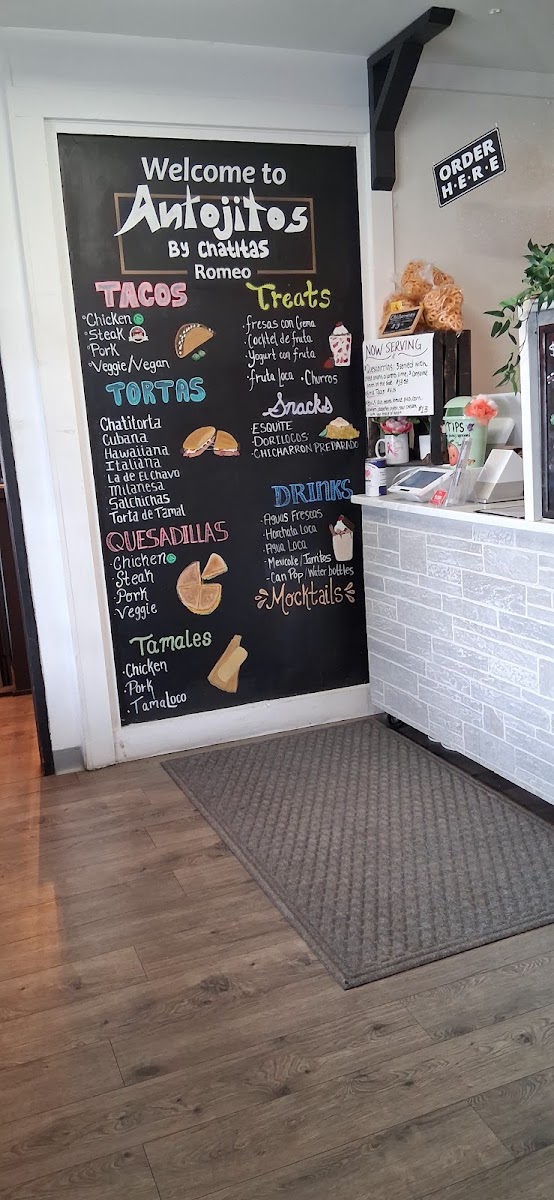 Welcome to
Antojitos
By Chatitas
Romeo
TACOS
Chicken
Steak
Pork
Veggie/Vegan
TORTAS
Chatitorta
Cubana
Hawaiiana
Italiana
La de El Chavo
Milanesa
Salchichas
Torta de Tamal
QUESADILLAS
Chicken
Steak
Pork
Veggie
Tamales
Chicken
Pork
TamaLoco
Treats
fresas con Crema
Cocktel de fruta
Yogurt con fruta
fruta loca · Churros
Snacks
ESQUITE
DORILOCOS
CHICHARRON PREPARADO
DRINKS
Aguas Frescas
Horchata Loca
Agua Loca
Mexicoke/Jarritos
Can Pop/Water bottles
Mocktails
ORDER
H·E·R·E
NOW SERVING
TIPS